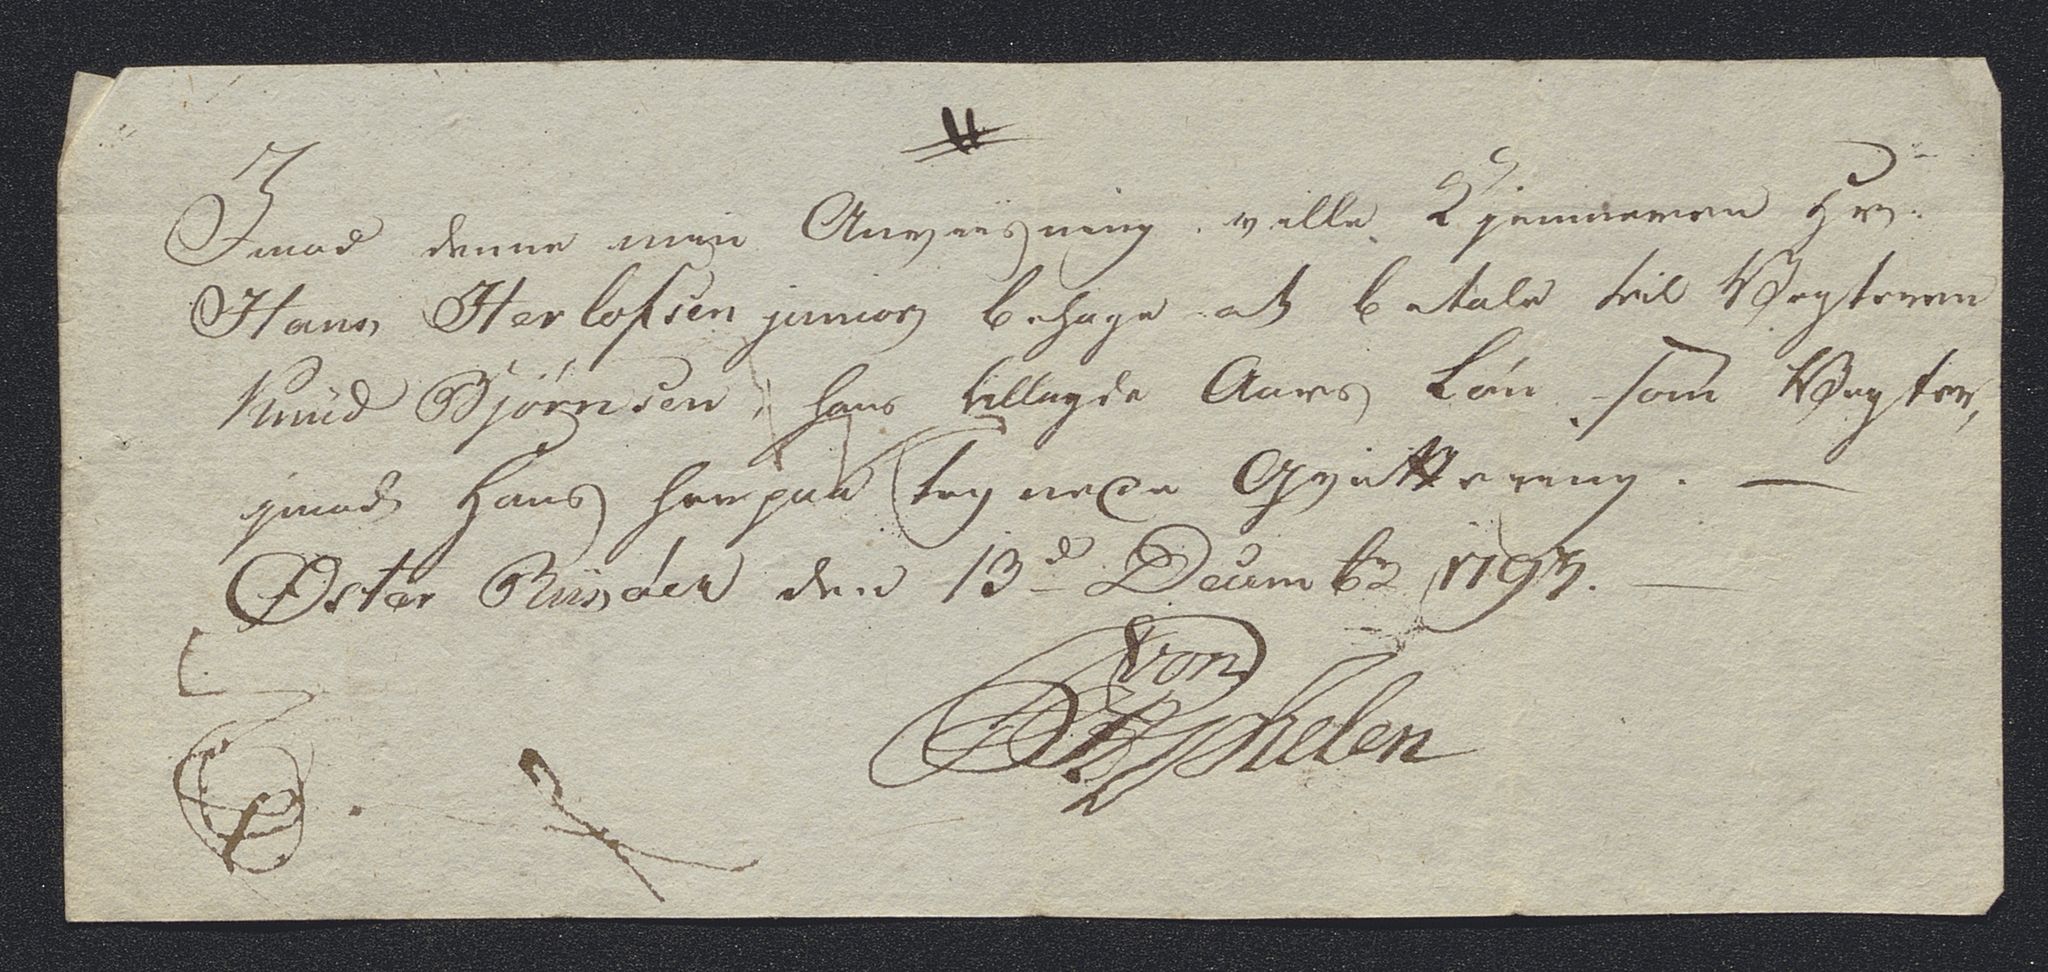 Imod denne min Anviisning ville Kjemneren Hr.
Hans Herlofsen junior behage at betale til Vegteren
Knud Bjørnsen, hans tillagde Aars Løn som Vegter,
imod Hans herpaa tegnede Qvittering. —
Øster Riisøer den 13d Decembr 1793. —
von
Kyphelen